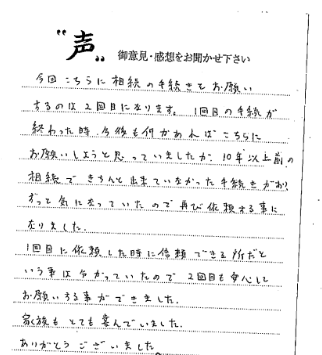 "声" 御意見・感想をお聞かせ下さい
今回こちらに相続の手続きをお願い
するのは2回目になります。1回目の手続が
終わった時、今後も何かあればこちらに
お願いしようと思っていましたが、10年以上前の
相続できちんと出来ていなかった手続きがあり
ずっと気になっていたので再び依頼する事に
なりました。
1回目に依頼した時に信頼できる所だと
いう事は分かっていたので2回目も安心し
お願いする事ができました。
家族もとても喜んでいました。
ありがとうございました。